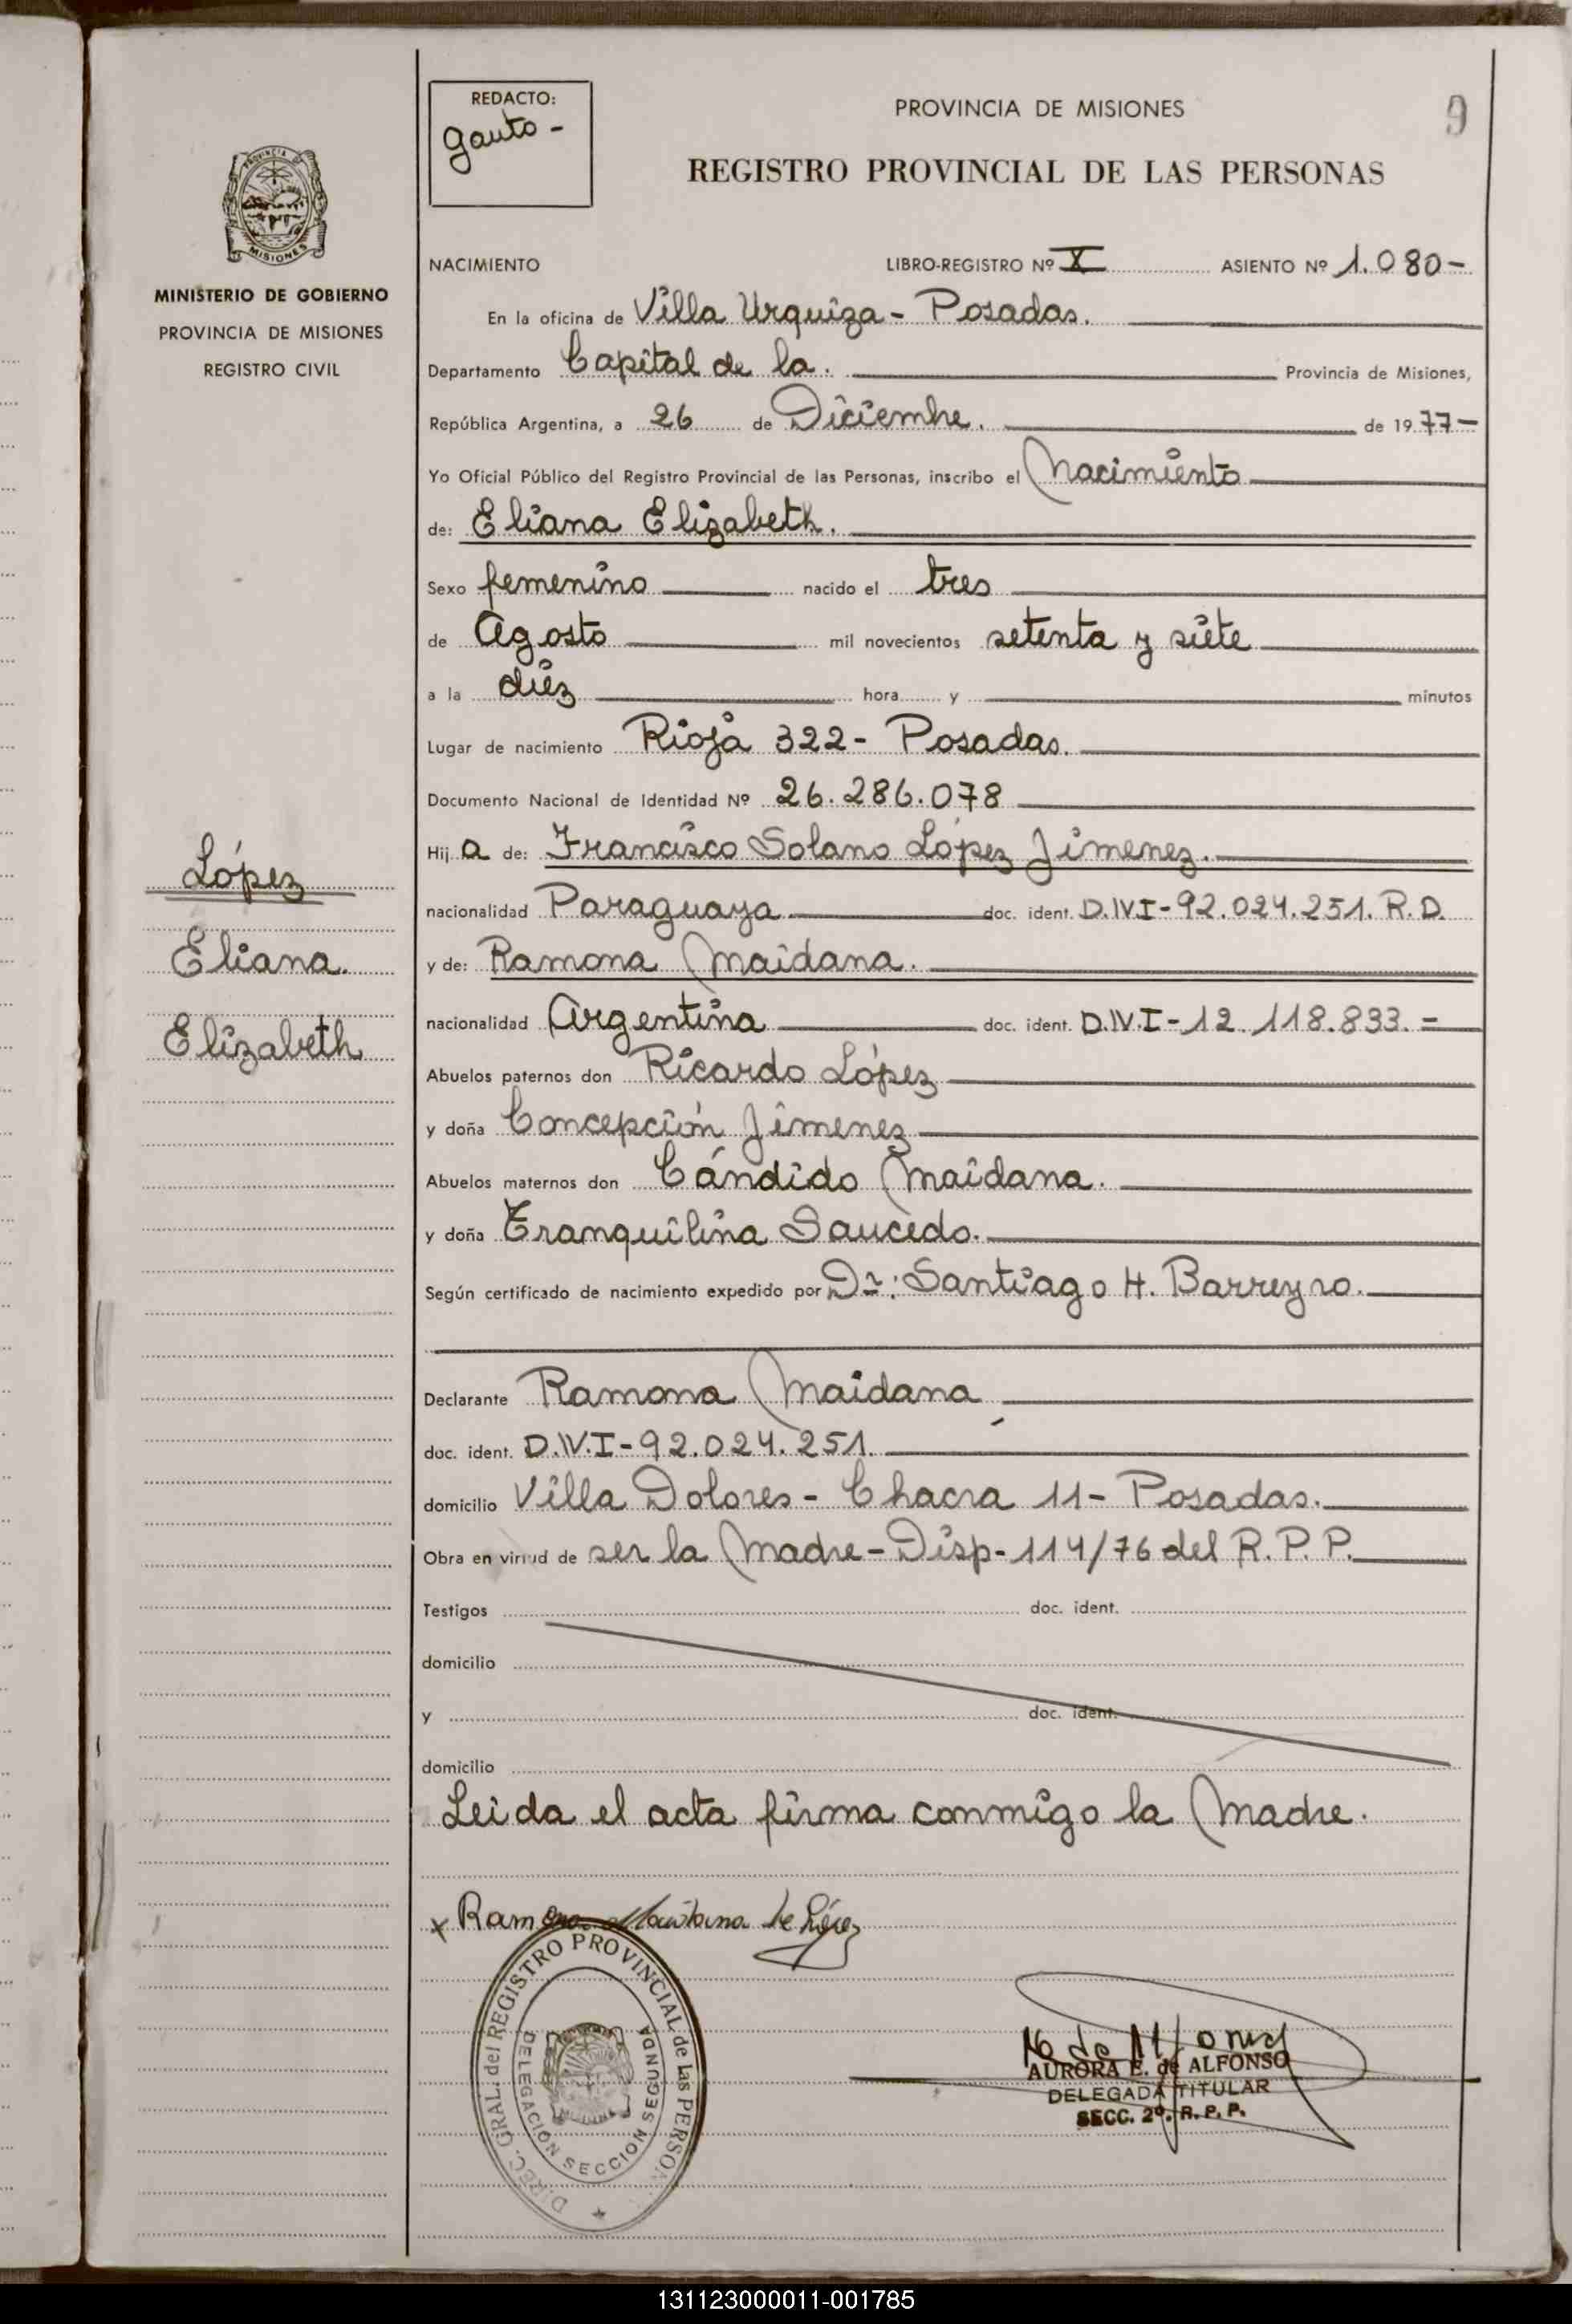 REDACTO:
Gauto -
PROVINCIA DE MISIONES
9
REGISTRO PROVINCIAL DE LAS PERSONAS
PROVINCIA DE MISIONES
MINISTERIO DE GOBIERNO
PROVINCIA DE MISIONES
REGISTRO CIVIL
NACIMIENTO LIBRO-REGISTRO Nº X ASIENTO Nº 1.080-
En la oficina de Villa Urquiza - Posadas.
Departamento Capital de la. Provincia de Misiones,
República Argentina, a 26 de Diciembre. de 1977-
Yo Oficial Público del Registro Provincial de las Personas, inscribo el Nacimiento
de: Eliana Elizabeth.
Sexo femenino nacido el tres
de Agosto mil novecientos setenta y siete
a la diez hora y minutos
Lugar de nacimiento Rioja 322- Posadas.
Documento Nacional de Identidad Nº 26.286.078
Hij a de: Francisco Solano López Jimenez.
nacionalidad Paraguaya doc. ident. D.N.I-92.024.251. R.D.
y de: Ramona Maidana.
nacionalidad Argentina doc. ident. D.N.I-12.118.833.=
Abuelos paternos don Ricardo López
y doña Concepción Jimenez
Abuelos maternos don Cándido Maidana.
y doña Tranquilina Saucedo.
Según certificado de nacimiento expedido por Dr: Santiago H. Barreyro.
Declarante Ramona Maidana
doc. ident. D.N.I-92.024.251.
domicilio Villa Dolores - Chacra 11- Posadas.
Obra en virtud de ser la Madre - Disp- 114/76 del R.P.P.
Testigos doc. ident.
domicilio
y doc. ident.
domicilio
Leida el acta firma conmigo la Madre.
López
Eliana.
Elizabeth
x Ramona Maidana de López
DIREC. GRAL. del REGISTRO PROVINCIAL de las PERSON
DELEGACION SECCION SEGUNDA
AURORA E. de ALFONSO
DELEGADA TITULAR
SECC. 2º. R. P. P.
131123000011-001785